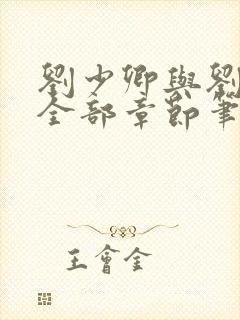 劉少卿與劉
全部章節筆
王會全